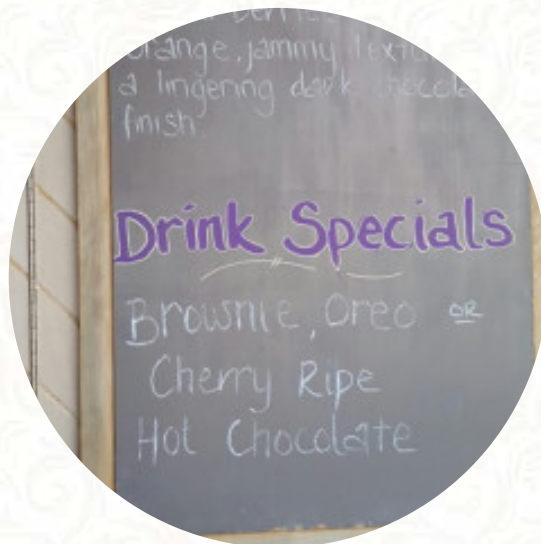 orange, jammy
a lingering dark chocola
finish
Drink Specials
Brownie, Oreo OR
Cherry Ripe
Hot Chocolate